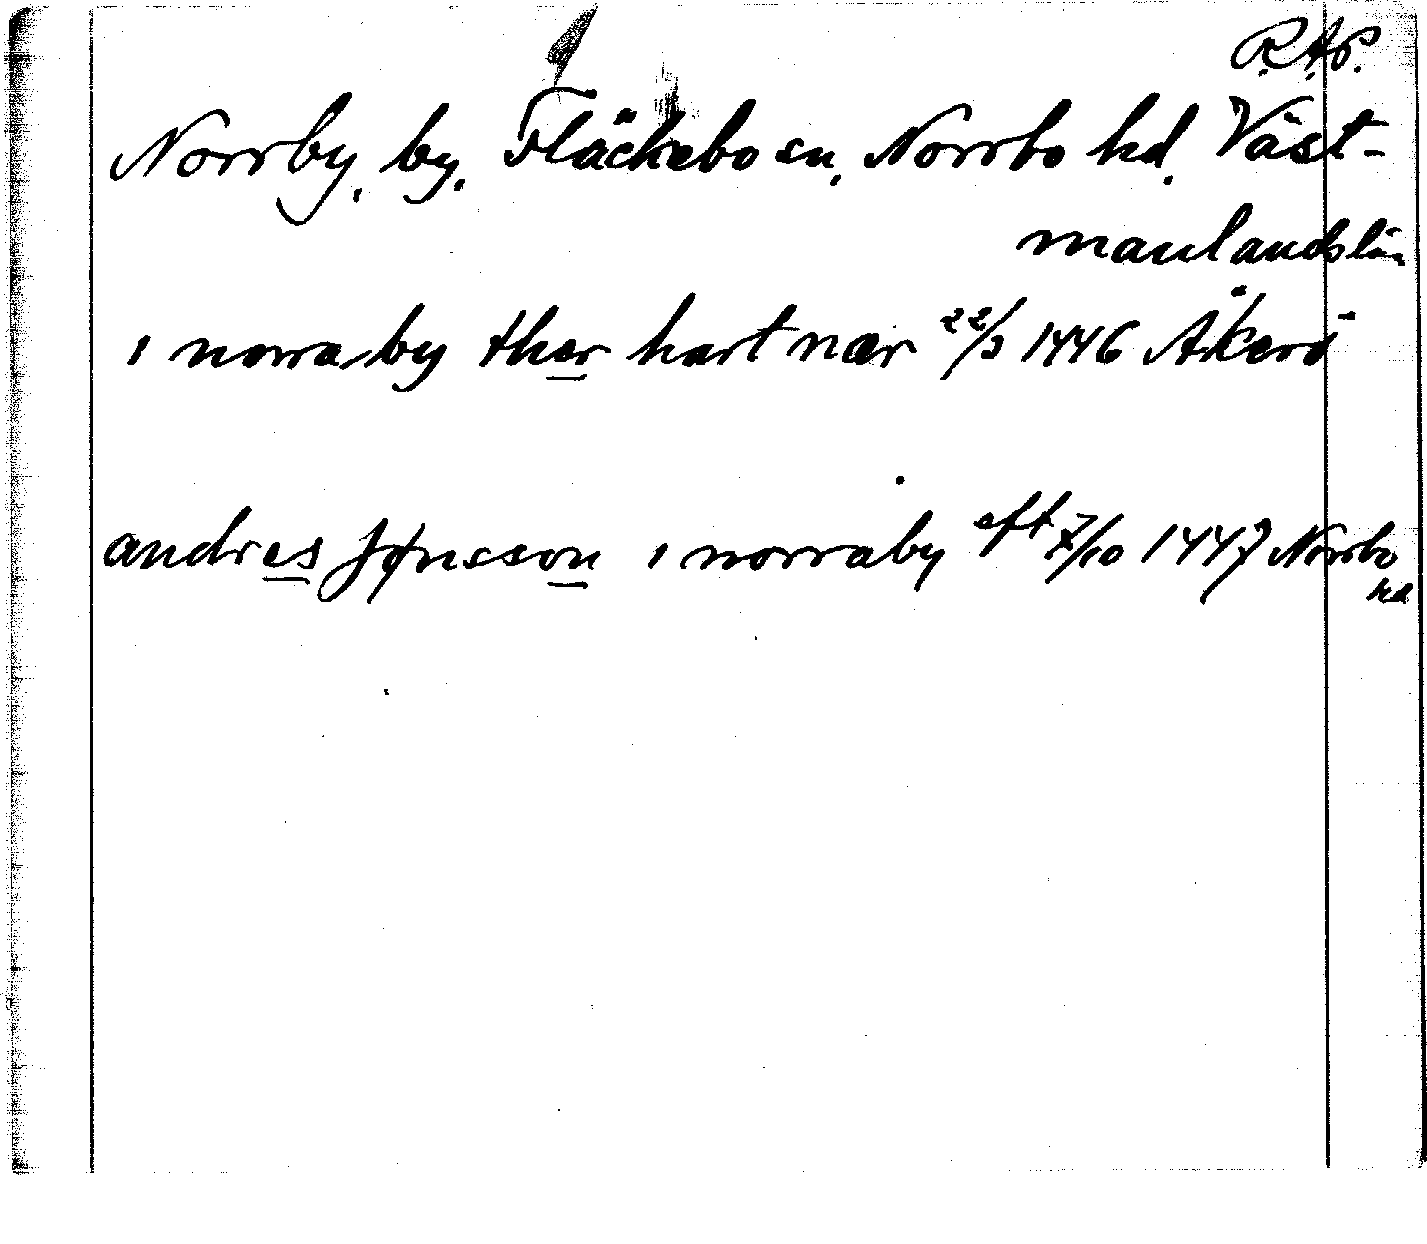 R.A.P.
Norrby, by, Fläckebo sn, Norrbo hd, Väst-
manlands län
i norraby ther hart nær 22/3 1446 Åkerö
andres Jønsson i norraby eft 7/10 1447 Norrbo
hd